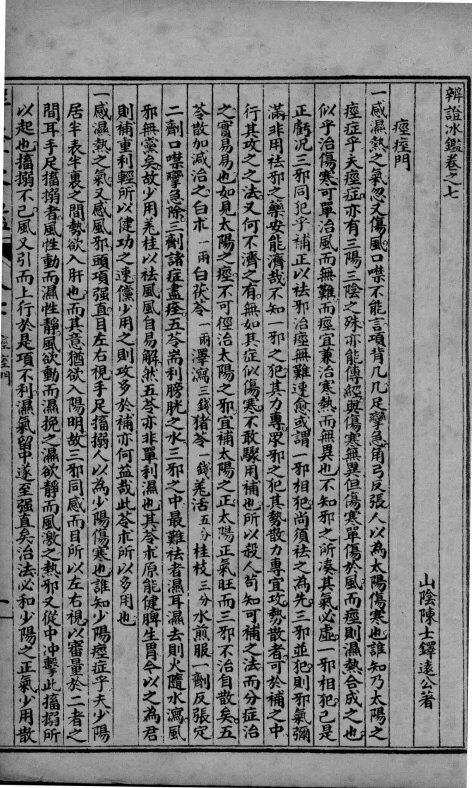 辨證冰鑑卷之七
山陰陳士鐸遠公著
痙痓門
一感濕熱之氣忽又傷風口噤不能言項背几几足攣急角弓反張人以為太陽傷寒也誰知乃太陽之
痙症乎夫痙症亦有三陽三陰之殊亦能傳經與傷寒無異但傷寒單傷於風而痙則濕熱合成之也
似乎治傷寒可單治風而無難而痙宜兼治寒熱而無異也不知邪之所湊其氣必虛一邪相犯已是
正虧況三邪同犯乎補正以祛邪治痙無難速愈或謂一邪相犯尚須祛之為先三邪並犯則邪氣彌
滿非用祛邪之藥安能濟哉不知一邪之犯其力專眾邪之犯其勢散力專宜攻勢散者可於補之中
行其攻之之法又何不濟之有無如其症似傷寒不敢驟用補也所以殺人苟知可補之法而分症治
之實易易也如見太陽之痙不可徑治太陽之邪宜補太陽之正太陽正氣旺而三邪不治自散矣五
苓散加減治之白朮一兩白茯苓一兩澤瀉三錢豬苓一錢羌活五分桂枝三分水煎服一劑反張定
二劑口噤攣急除三劑諸症盡痊五苓耑利膀胱之水三邪之中最難祛者濕耳濕去則火隨水瀉風
邪無黨矣故少用羌桂以祛風風自易解然五苓亦非單利濕也其苓朮原能健脾生胃今以之為君
則補重利輕所以健功之速儻少用之則攻多於補亦何益哉此苓朮所以多用也
一感濕熱之氣又感風邪頭項强直目左右視手足搐搦人以為少陽傷寒也誰知少陽痙症乎夫少陽
居半表半裏之間勢欲入肝也而其意猶欲入陽明故三邪同感而目所以左右視以審量於二者之
間耳手足搐搦者風性動而濕性靜風欲動而濕挽之濕欲靜而風激之熱邪又從中冲擊此搐搦所
以起也搐搦不已風又引而上行於是項不利濕氣留中遂至强直矣治法必和少陽之正氣少用散
痙痓門